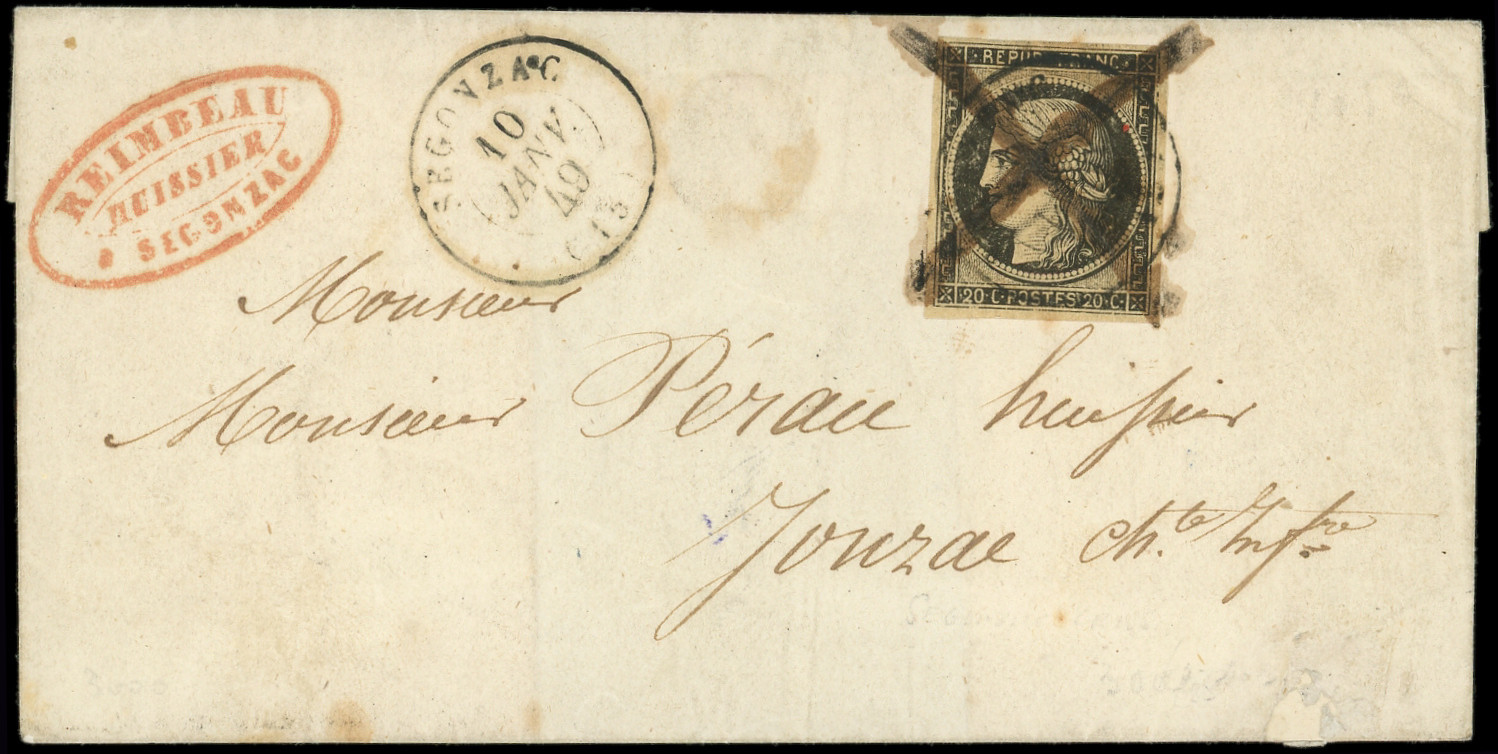 REIMBEAU
HUISSIER
SEGONZAC
SEGONZAC
10
JANV.
49
(15)
REPUB. FRANC.
20·C·POSTES·20·C·
Monsieur
Monsieur Pérau huissier
Jonzac ch.te Inf.re